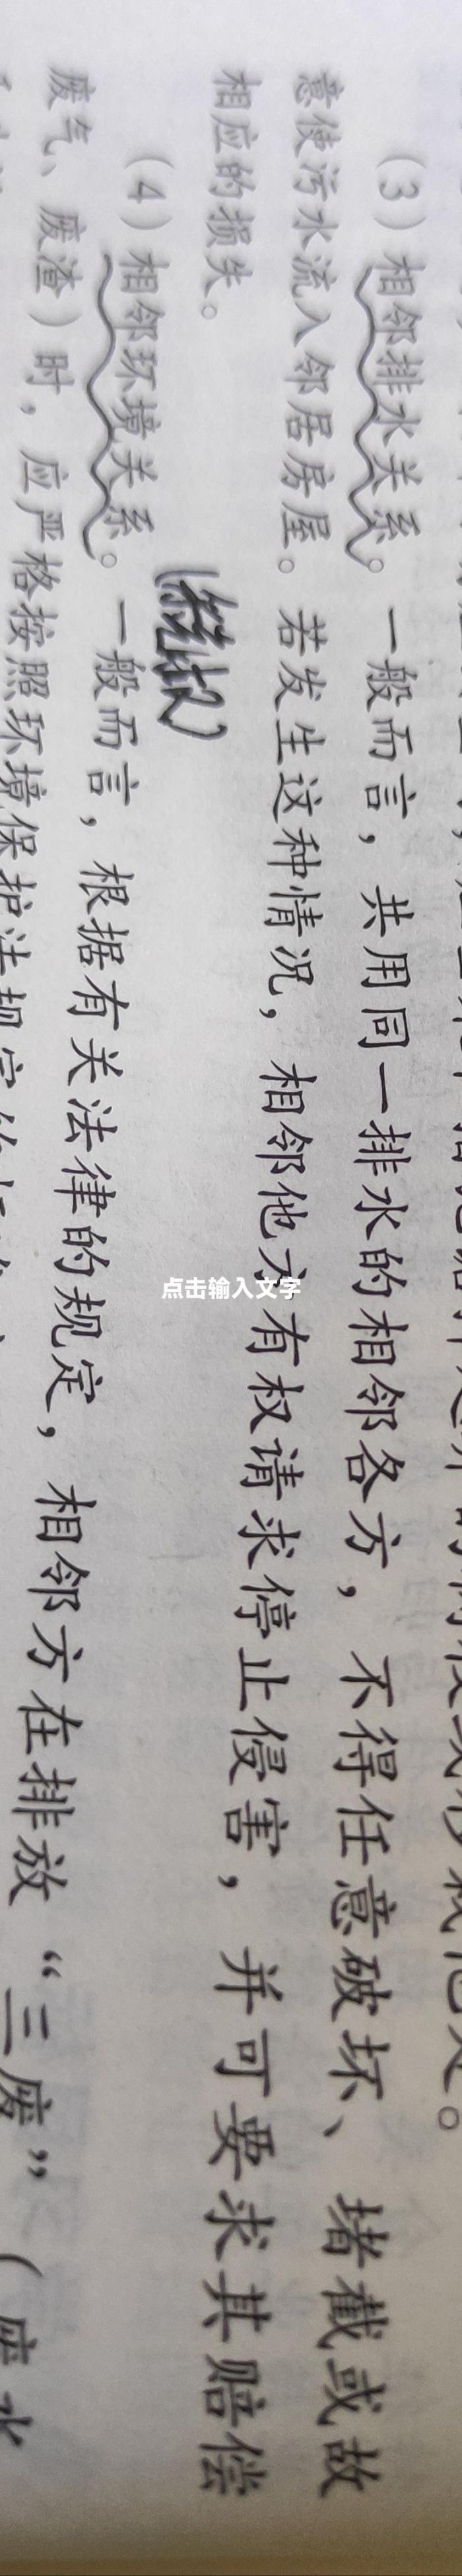 (3) 相邻排水关系。一般而言，共用同一排水的相邻各方，不得任意破坏、堵截或故
意使污水流入邻居房屋。若发生这种情况，相邻他方有权请求停止侵害，并可要求其赔偿
相应的损失。
(4) 相邻环境关系。一般而言，根据有关法律的规定，相邻方在排放“三废”（废水
废气、废渣）时，应严格按照环境保护法规定的
点击输入文字